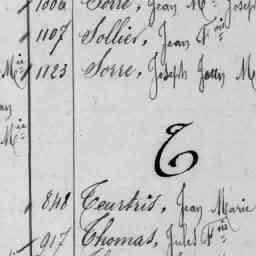 1006 Sorre, Jean Mie Joseph
1107 Sollier, Jean Fois
Mie 1123 Sorre, Joseph Jean M
T
Mie
848 Teurtris, Jean Marie
917 Thomas, Jules Fois